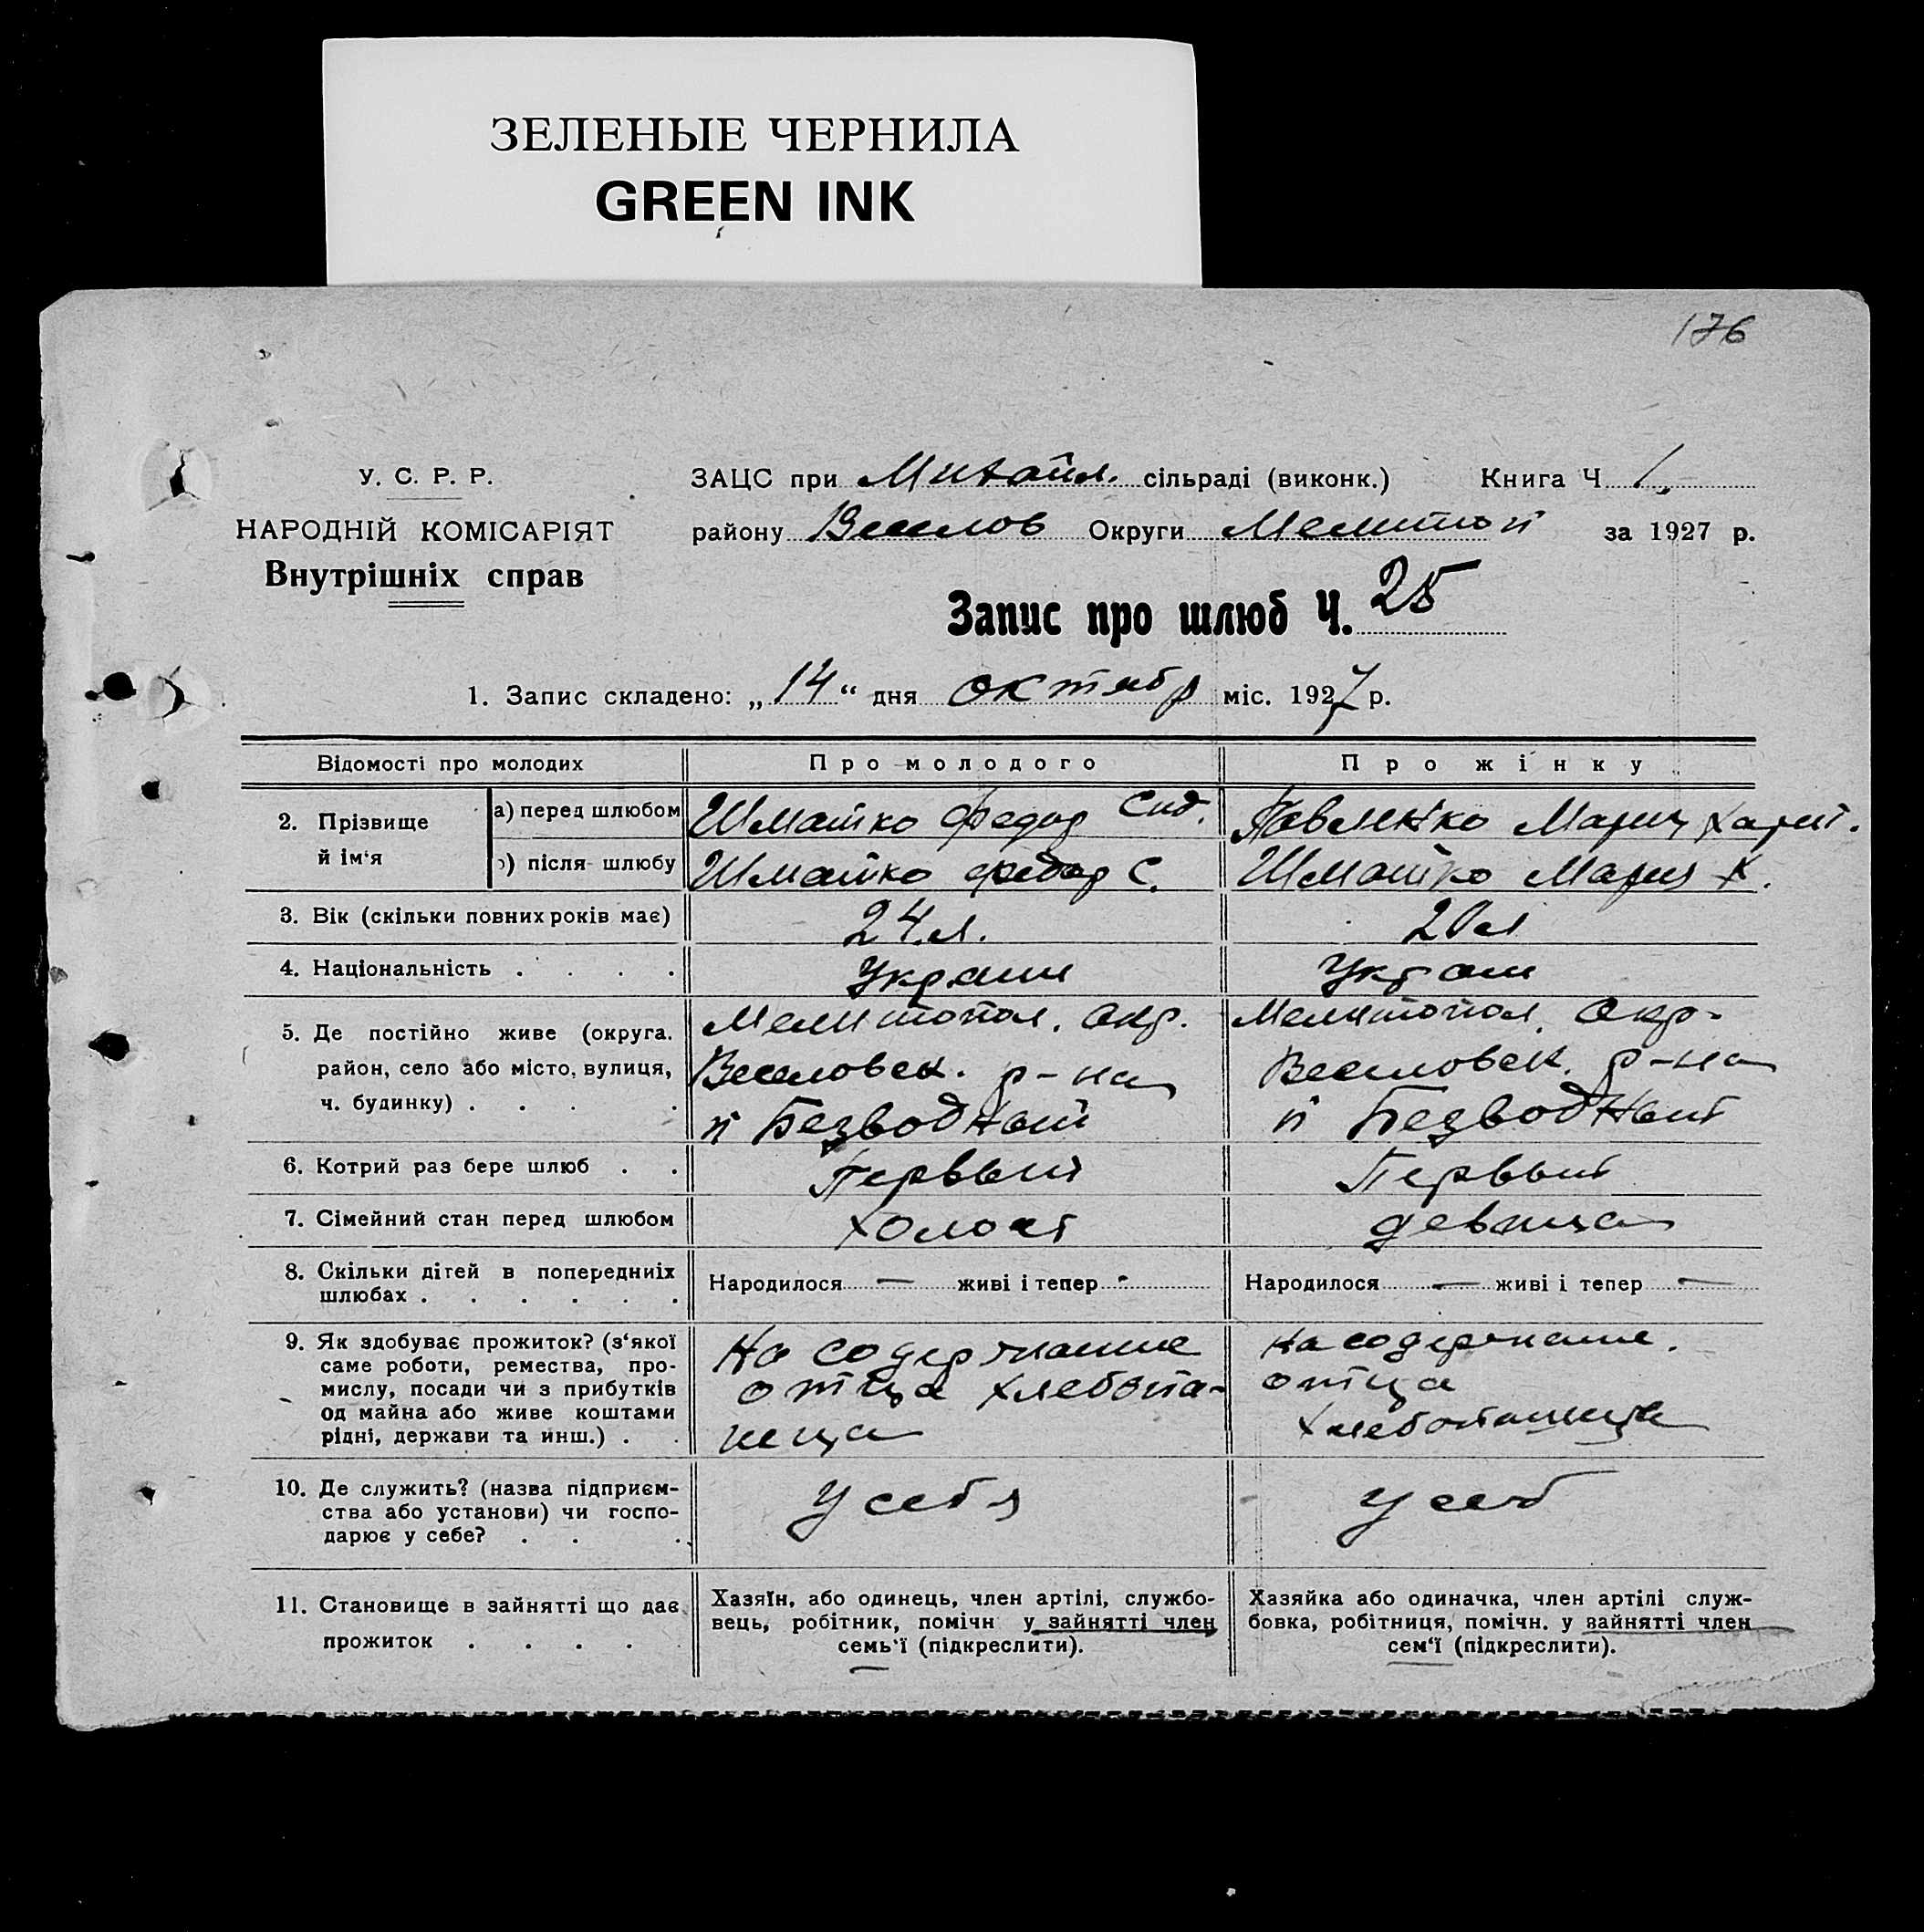 ЗЕЛЕНЫЕ ЧЕРНИЛА
GREEN INK
176
У. С. Р. Р.
НАРОДНІЙ КОМІСАРІЯТ
Внутрішніх справ
ЗАЦС при Михайл. сільраді (виконк.) Книга Ч 1.
району Веселов Округи Мелитоп за 1927 р.
Запис про шлюб Ч. 25
1. Запис складено: „14“ дня октябр міс. 1927 р.
Відомості про молодих Про молодого Про жінку
2. Прізвище й ім‘я
а) перед шлюбом Шматко Федор Сид. Павленко Мария Харит.
б) після шлюбу Шматко Федор С. Шматко Мария Х.
3. Вік (скільки повних років має) 24 л. 20 л
4. Національність . . . . Украин Украин
5. Де постійно живе (округа. район, село або місто, вулиця, ч. будинку) . . . .
Мелитопол. окр.
Веселовск. р-на
п Безводный
Мелитопол. Окр.
Веселовск. р-на
п Безводный
6. Котрий раз бере шлюб . . Первый Первый
7. Сімейний стан перед шлюбом холост девица
8. Скільки дітей в попередниіх
шлюбах . . . . . .
Народилося — живі і тепер - Народилося — живі і тепер —
9. Як здобуває прожиток? (з‘якої
саме роботи, ремества, про-
мислу, посади чи з прибутків
од майна або живе коштами
рідні, держави та инш.) . .
на содержание
отца хлебопа-
шца
на содержание.
отца
хлебопашца
10. Де служить? (назва підприєм-
ства або установи) чи госпо-
дарює у себе? . . .
У себя У себ
11. Становище в зайнятті що дає
прожиток . . . . .
Хазяїн, або одинець, член артілі, службо-
вець, робітник, помічн у зайнятті член
семь‘ї (підкреслити).
Хазяйка або одиначка, член артілі служ-
бовка, робітниця, помічн. у зайнятті член
сем‘ї (підкреслити).